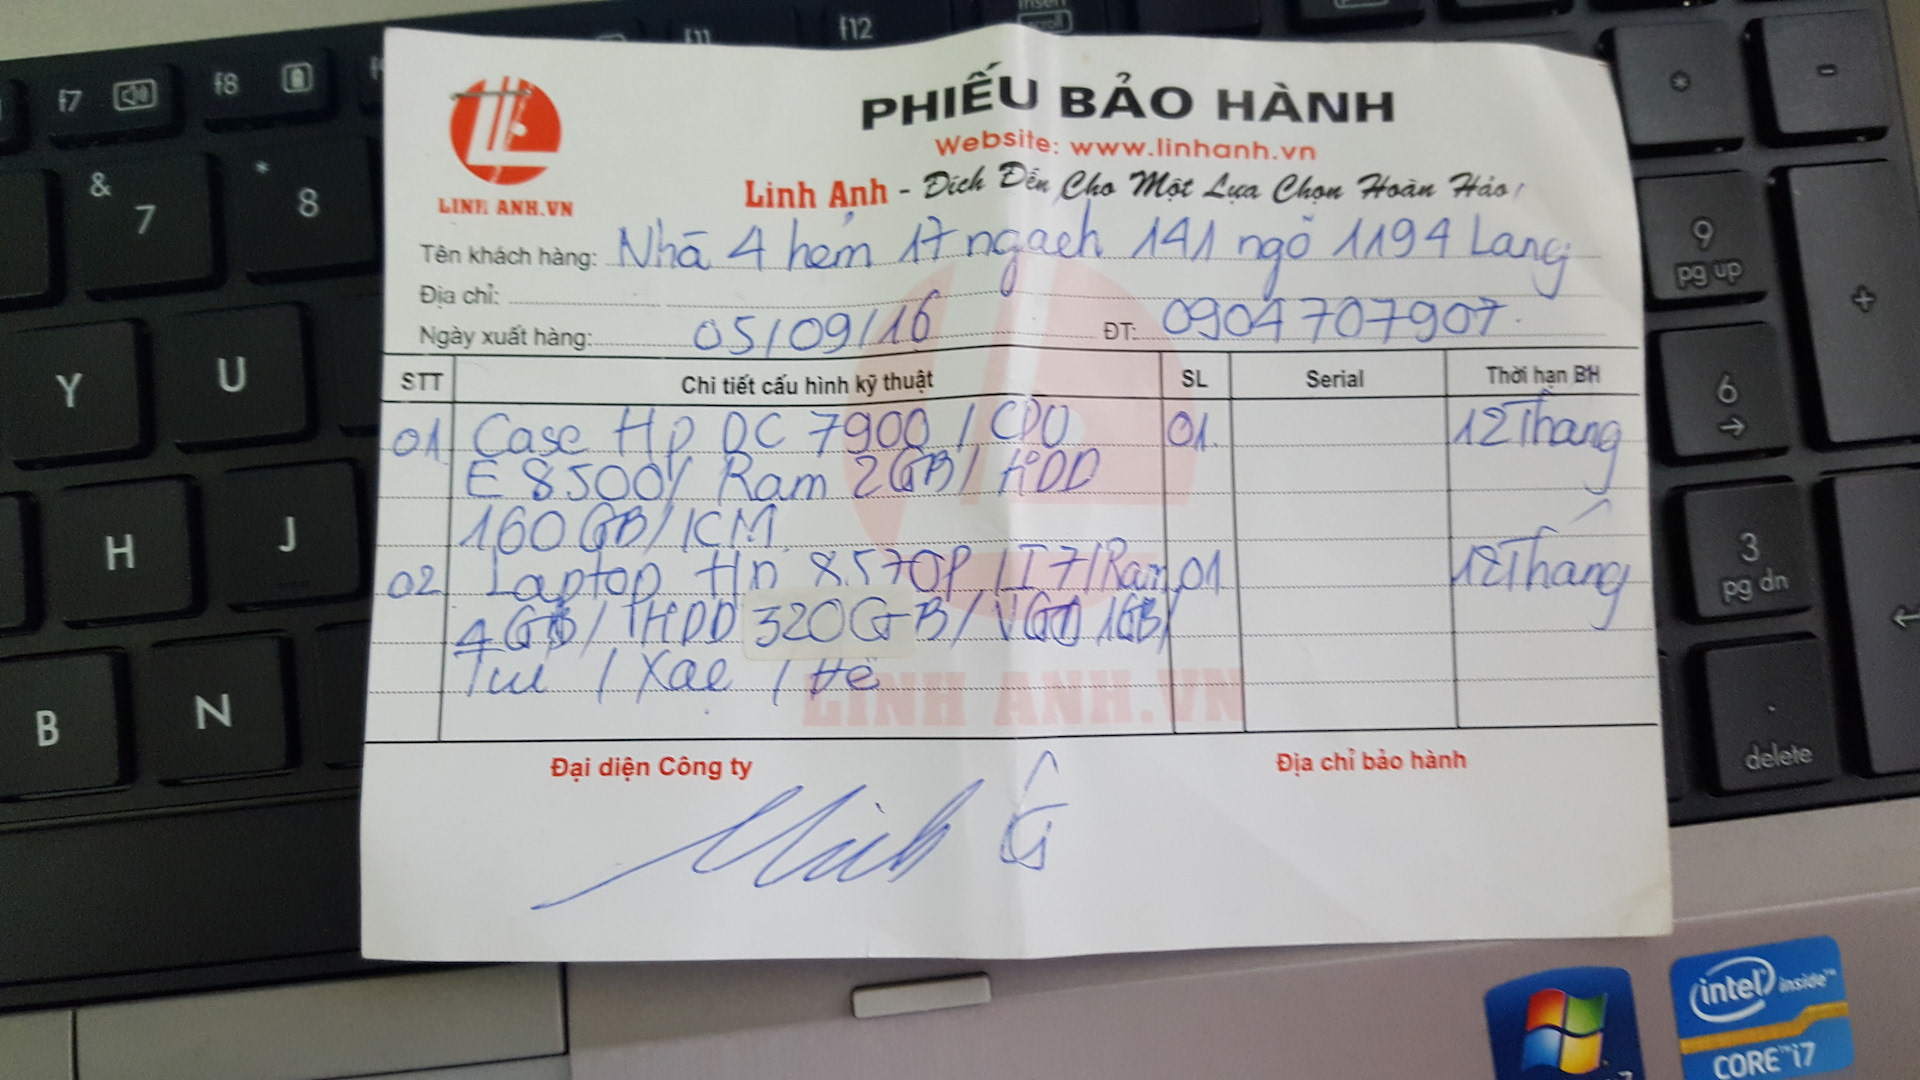 f7
f8
f11
f12
insert
scroll
&
7
*
8
Y
U
H
J
B
N
*
-
9
pg up
+
6
3
pg dn
.
delete
LINH ANH.VN
PHIẾU BẢO HÀNH
Website: www.linhanh.vn
Linh Anh - Đích Đến Cho Một Lựa Chọn Hoàn Hảo!
Tên khách hàng: Nhà 4 hẻm 17 ngach 141 ngõ 1194 Lang
Địa chỉ:
Ngày xuất hàng: 05/09/16 ĐT: 0904707907.
STT Chi tiết cấu hình kỹ thuật SL Serial Thời hạn BH
01 Case Hp DC 7900 / CPU 01 12 Tháng
E 8500/ Ram 2GB/ HDD
160GB/ KM
02 Laptop Hp 8570P / I7/ Ram 01 12 Tháng
4GB/ HDD 320GB/ VGA 1GB/
Tui / Xạc / Đế
LINH ANH.VN
Đại diện Công ty Địa chỉ bảo hành
intel inside™
CORE™ i7